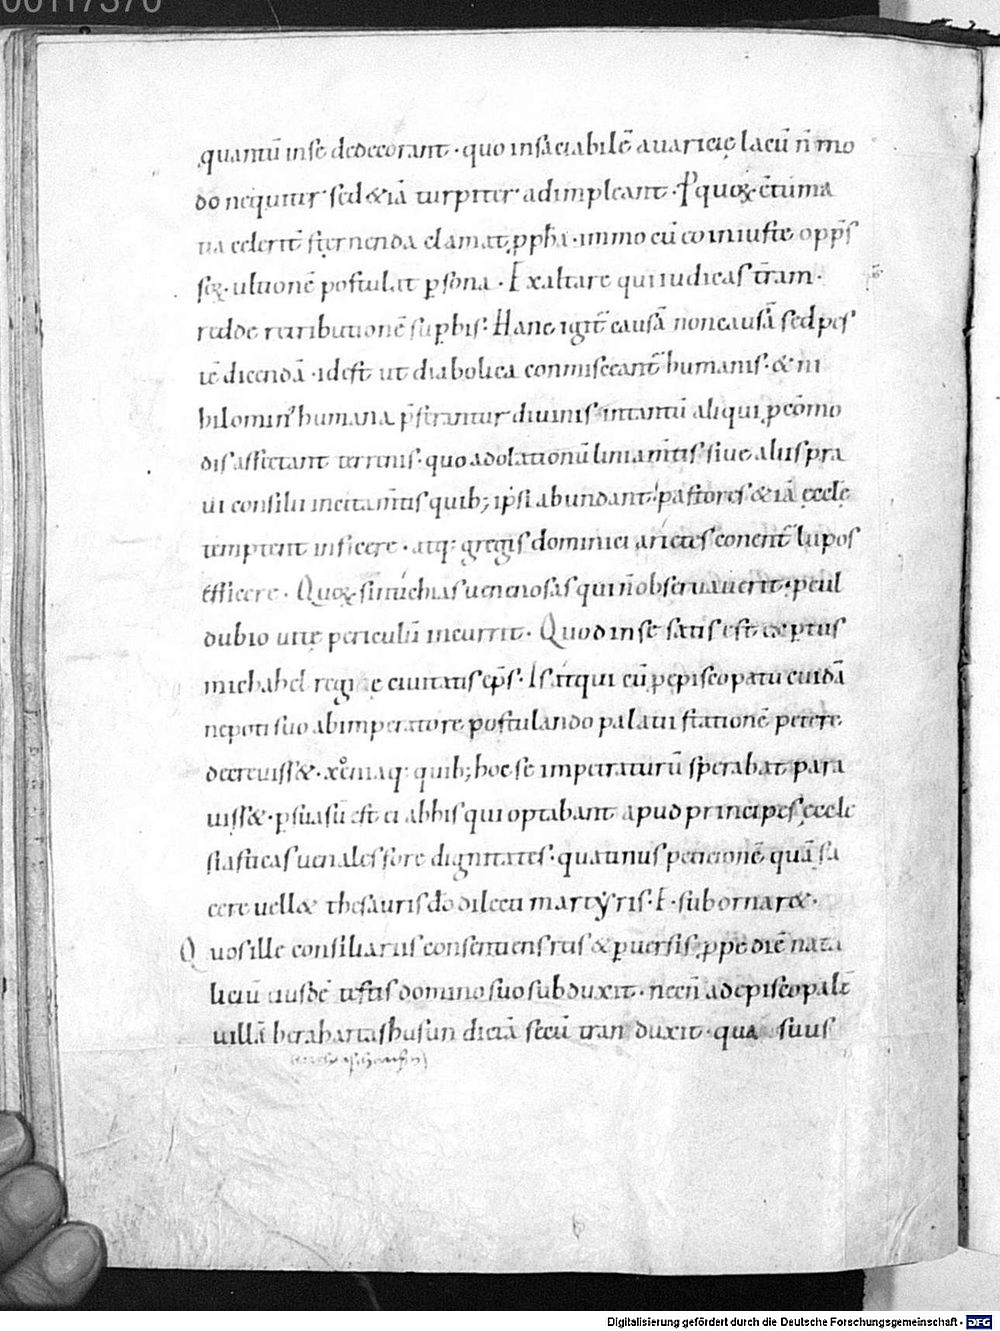 quantū inse dedecorant · quo insaciabilē auaricię lacū n̄ mo
do nequiter sed &iā turpiter adimpleant · P quoꝝ c̄tuma
cia sternenda clamat ꝓph̄a · immo cū eo iniuste opp̄s
soꝝ · ultionē postulat ꝑsona · Exaltare qui iudicas t̄ram ·
redde retributionē suꝑbis: Hanc igit̄ causā non causā sed pes
tē dicendā · idest ut diabolica conmisceant̄ humanis · & ni
hilomin' humana p̄ferantur diuinis intantū aliqui ꝓ cōmo
dis affectant terrenis · quo adolationū liniam̄tis siue aliis pra
ui consilii incitam̄tis quib; ip̄si abundant pastores &iā ęcclę
temptent inficere · atq: gregis dominici arietes conent̄ lupos
efficere · Quoꝝ sinuchias uenenosas qui n̄ obseruauerit · pcul
dubio uitę periculū incurrit · Quod in se satis est exptus
michahel reginę ciuitatis ep̄s · Is itaqui cū ꝓ episcopatu cuidā
nepoti suo ab imperatore postulando palatii stationē petere
decreuiss& · xeniaq: quib; hoc se impetraturū sperabat para
uiss& · ꝑsuasū est ei ab his qui optabant apud principes ęccle
siasticas uenales fore dignitates · quatinus peticionē quā fa
cere uell& thesauris d̄o dilecti martyris · E · subornar& ·
Quos ille consiliarius consentiens reis & ꝑuersis ꝓpe diē nata
liciū eiusdē testis domino suo subduxit · necn̄ ad episcopalē
uillā berahartashusun dictā secū tranduxit · qua suus